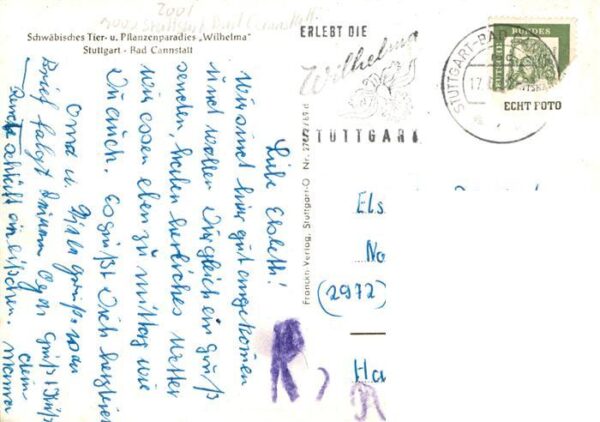 2001
7000 Stuttgart Bad Cannstatt
Schwäbisches Tier- u. Pflanzenparadies „Wilhelma"
Stuttgart - Bad Cannstatt
ERLEBT DIE
Wilhelma
STUTTGART
STUTTGART-BAD
17
DEUTSCHE BUNDES
ECHT FOTO
Franckh-Verlag, Stuttgart-O Nr.
Liebe Elsbeth!
Wir sind hier gut angekommen
und wollen Dir gleich ein Gruß
senden, haben herrliches Wetter
wir essen eben zu mittag wie
Du auch. Es grüßt Dich herzlich
Oma u.
Brief folgt Gruß
schläft ein bißchen. dein
Mama
Els
No
(2972)
Ha
R